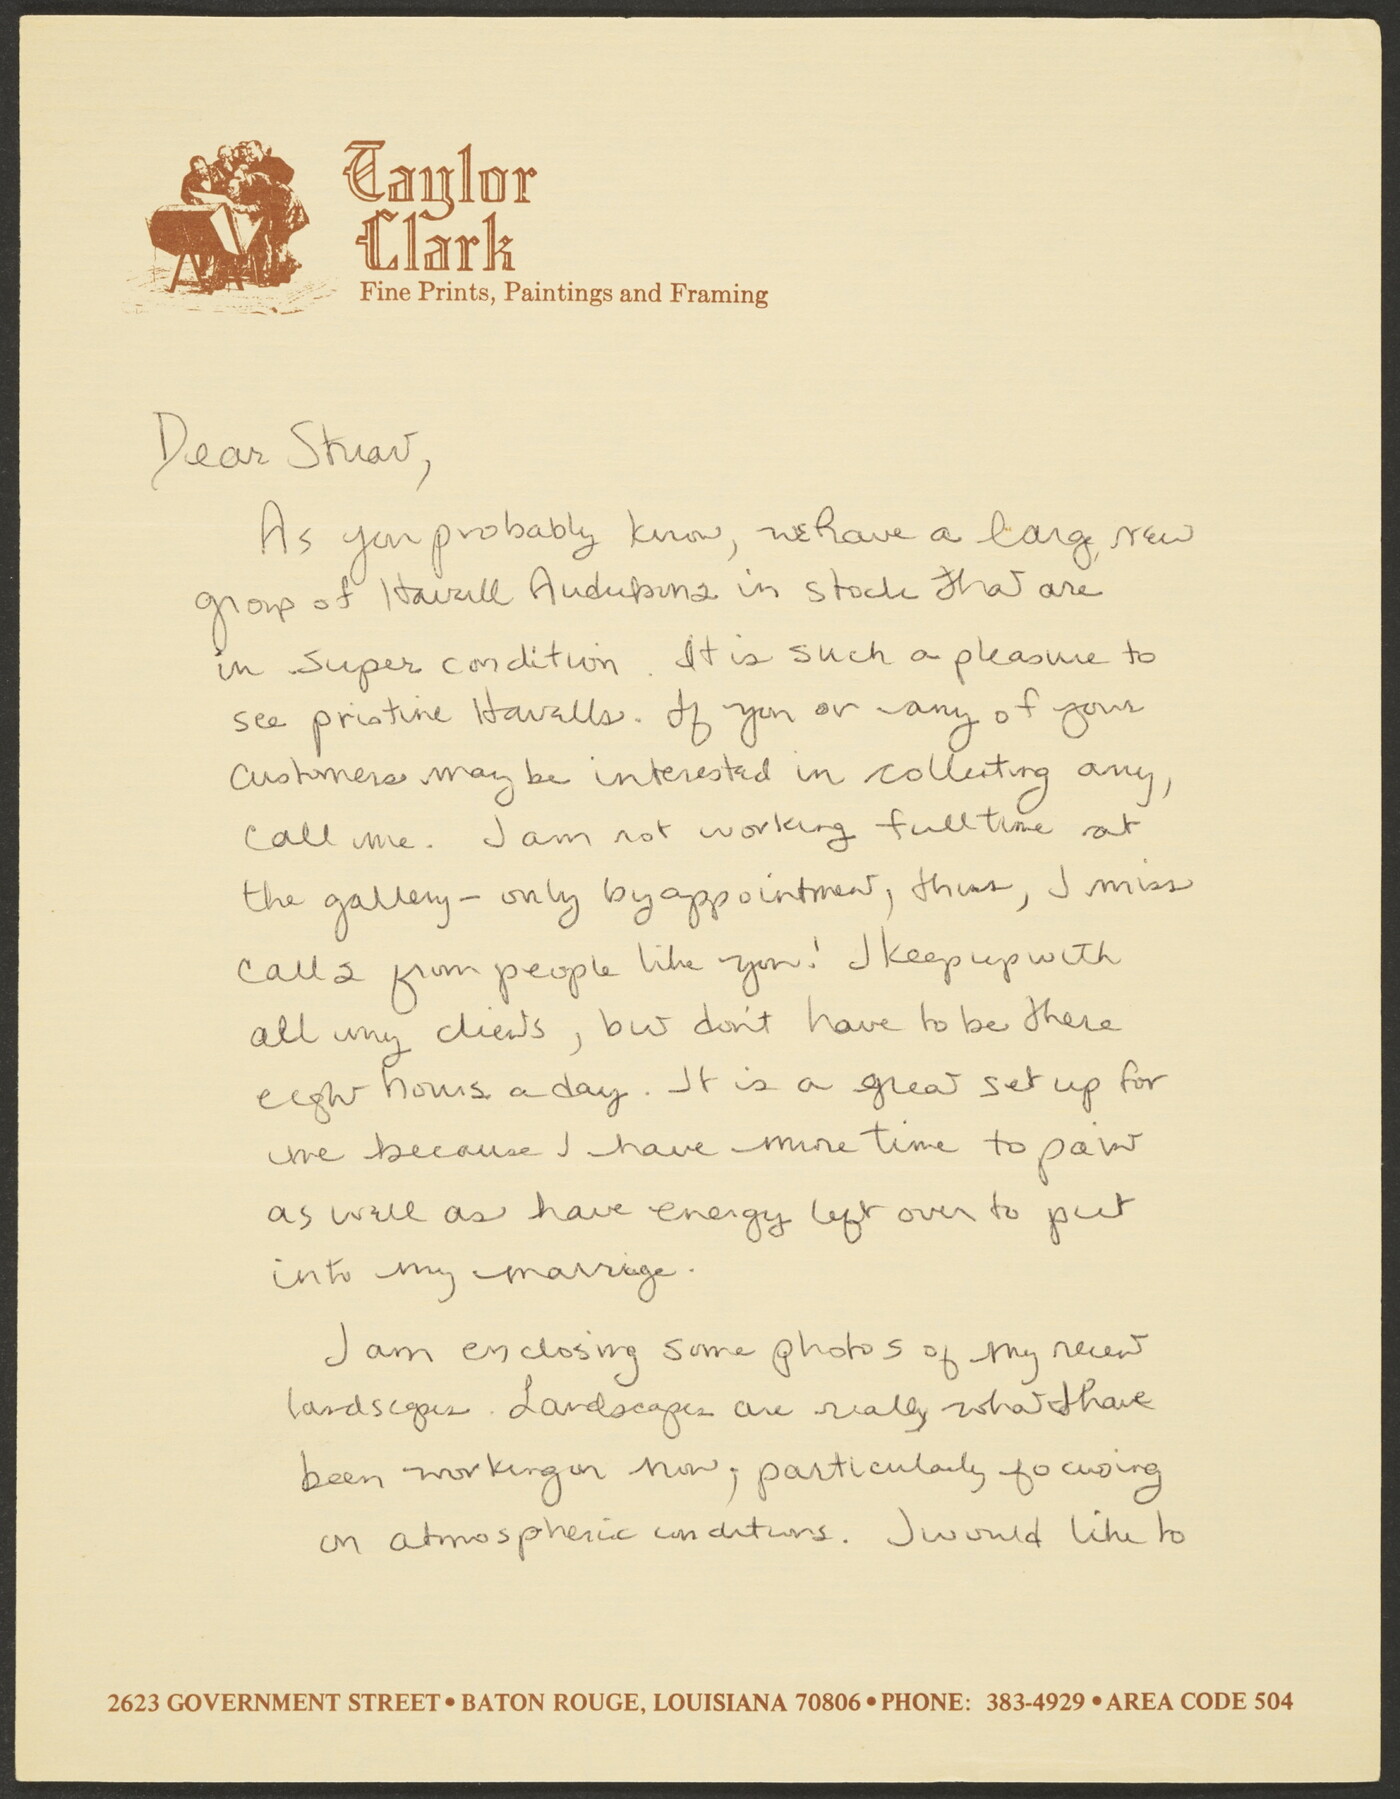 Taylor
Clark
Fine Prints, Paintings and Framing
Dear Stuart,
As you probably know, we have a large, new
group of Havell Audubons in stock that are
in super condition. It is such a pleasure to
see pristine Havells. If you or any of your
customers may be interested in collecting any,
call me. I am not working full time at
the gallery - only by appointment, thus, I miss
calls from people like you! I keep up with
all my clients, but don't have to be there
eight hours a day. It is a great set up for
me because I have more time to paint
as well as have energy left over to put
into my marriage.
I am enclosing some photos of my recent
landscapes. Landscapes are really what I have
been working on now; particularly focusing
on atmospheric conditions. I would like to
2623 GOVERNMENT STREET • BATON ROUGE, LOUISIANA 70806 • PHONE: 383-4929 • AREA CODE 504